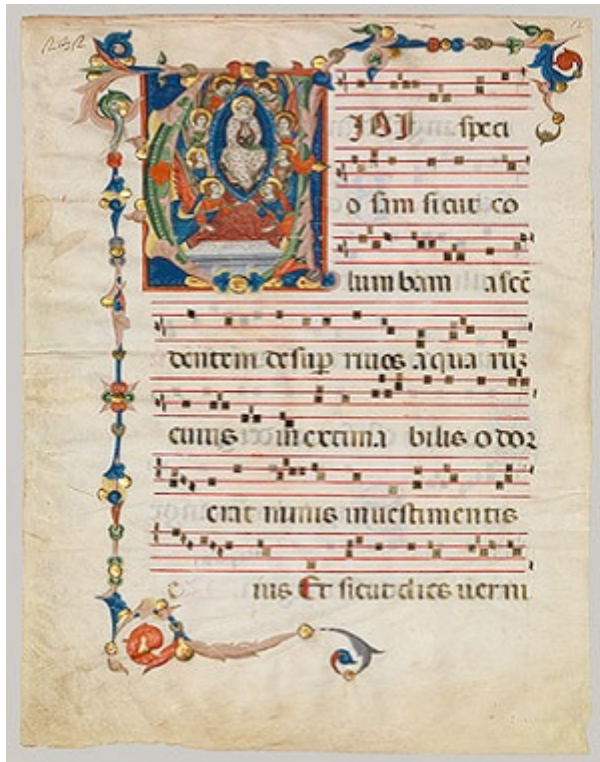 VIDI speci
o sam sicut co
lum bam ascē
dentem desup riuos aqua ruz
cuius in extima bilis o dor
erat nimis inuestimentis
e ius Et sicut dies uerni